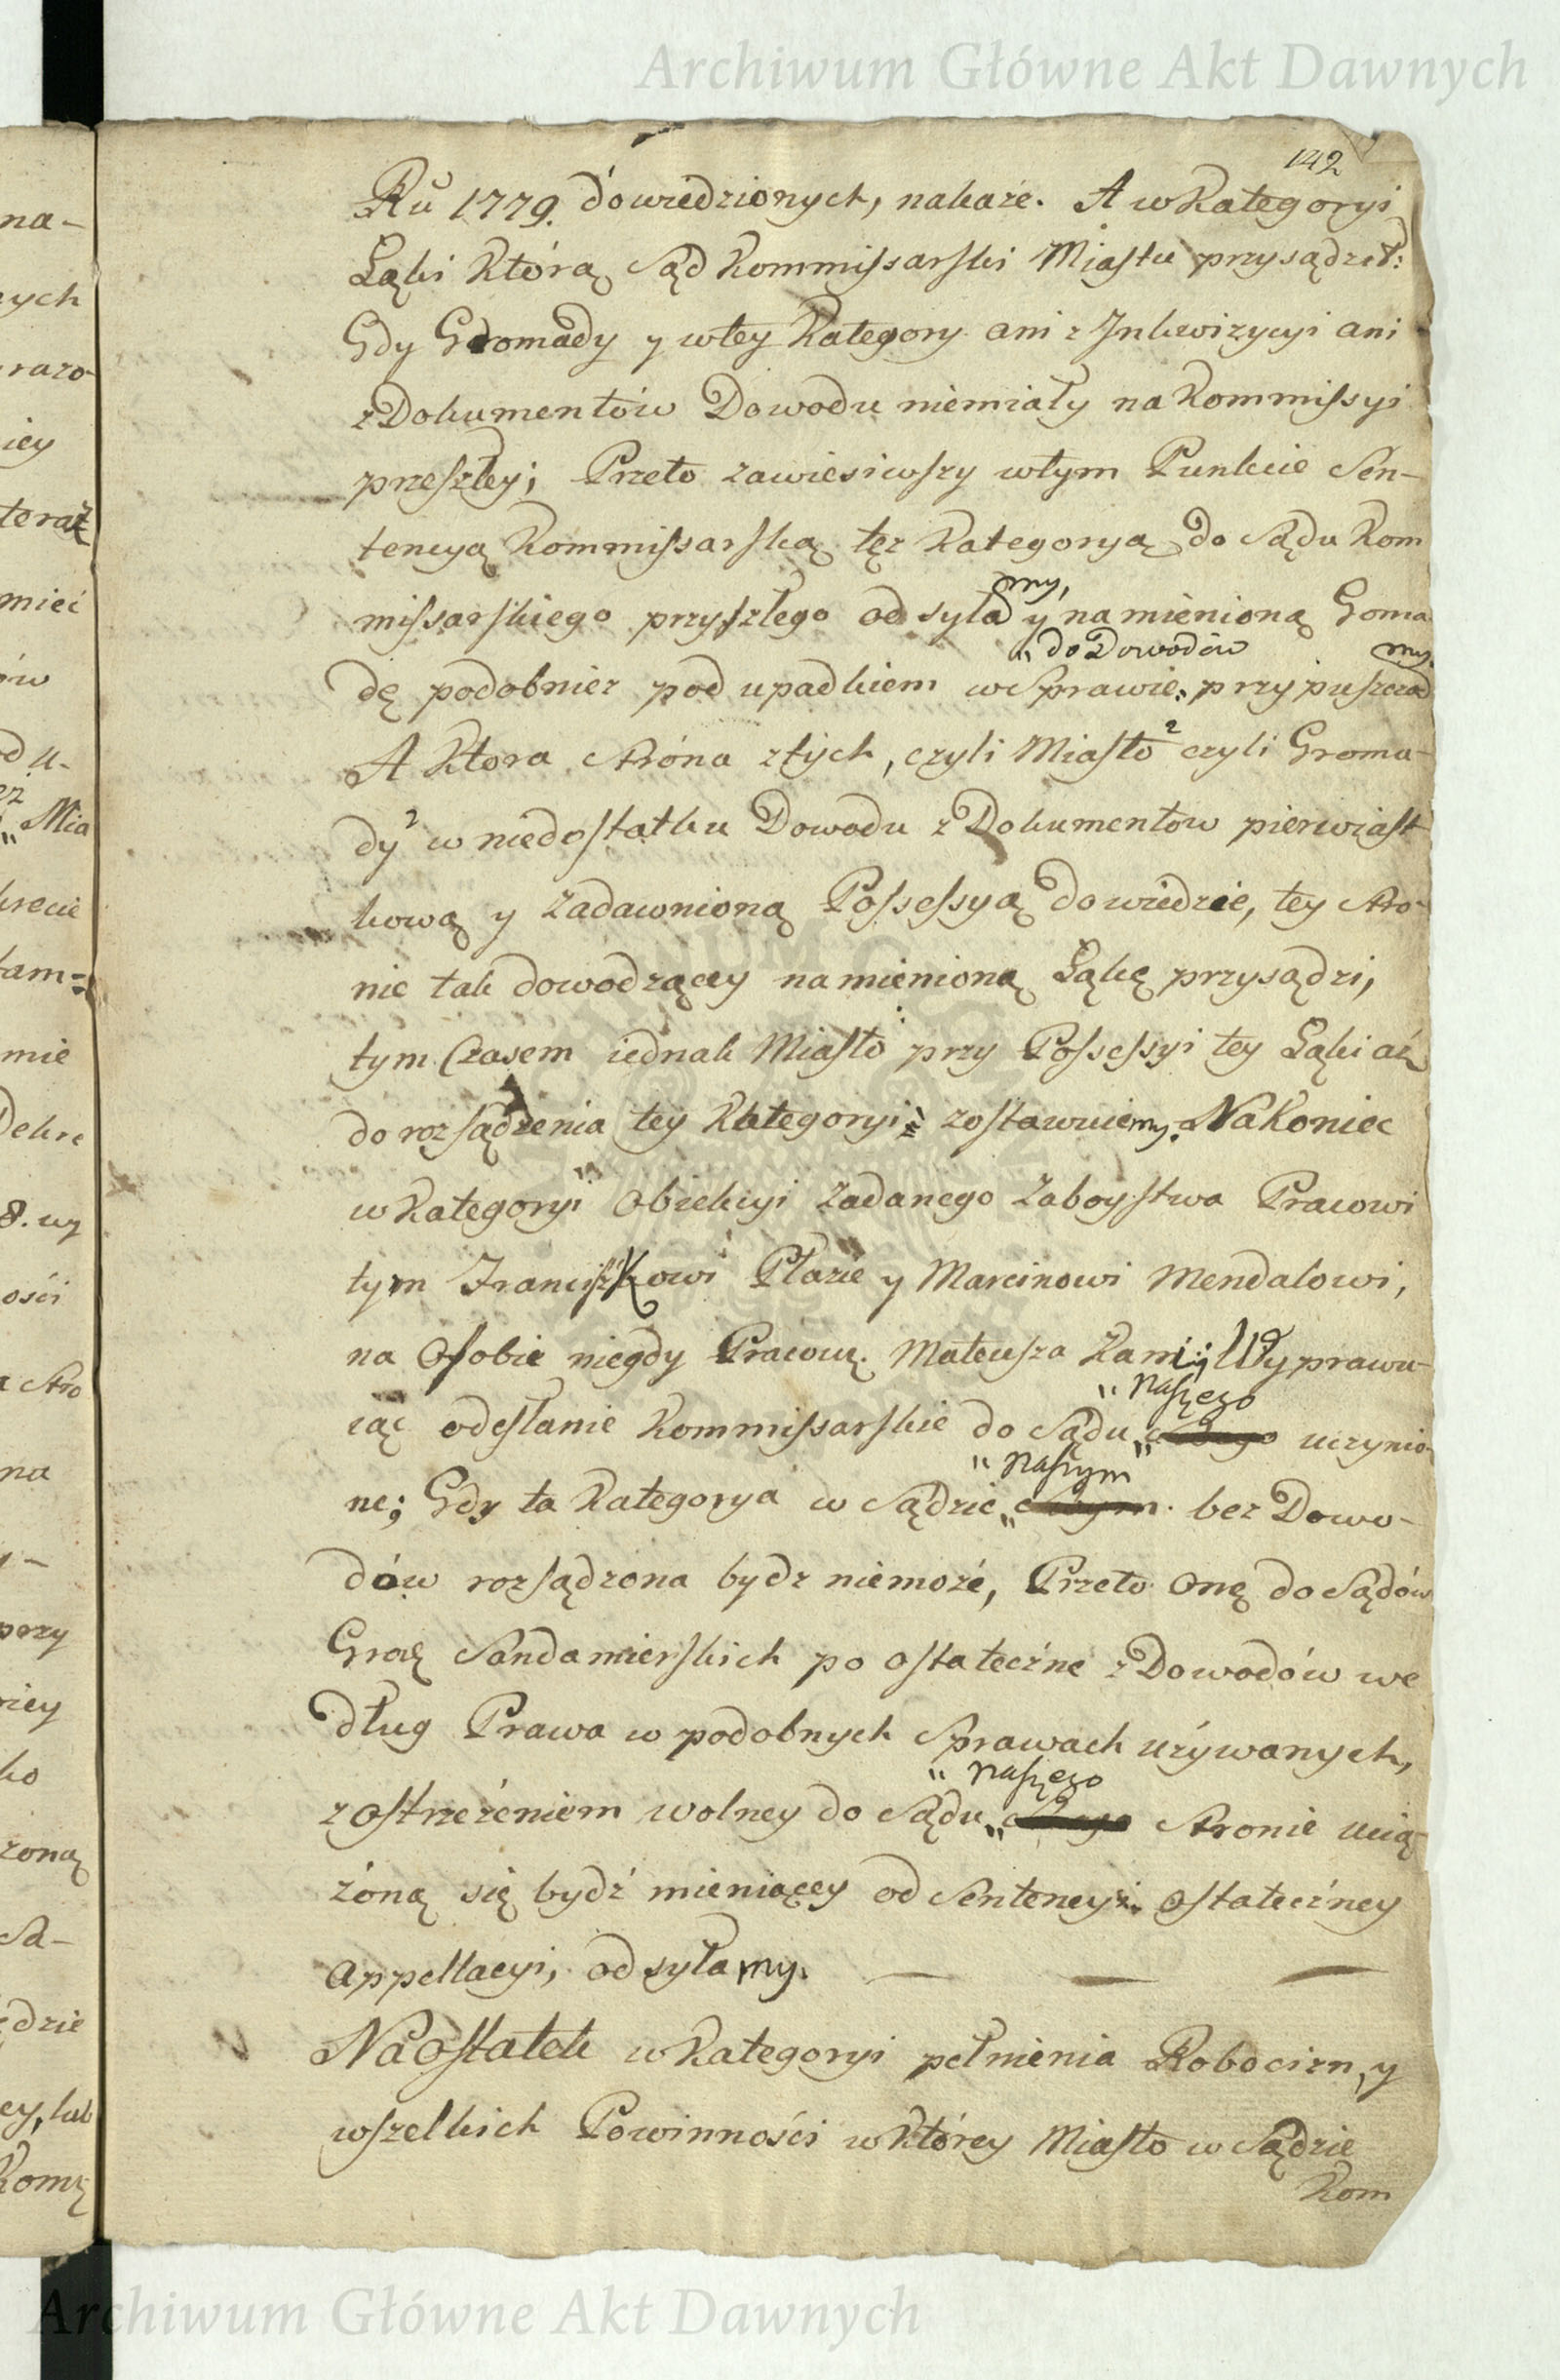 Archiwum Główne Akt Dawnych
142
Ru 1779. dowiedzionych, nakaże. A w Kategoryi
Łąki którą Sąd Kommissarski Miastu przysądził:
Gdy Gromady y wtey Kategory ani z Inkwizycyi ani
z Dokumentów Dowodu niemiały na Kommissyi
przeszłey; Przeto zawiesiwszy wtym Punkcie Sen-
tencyą Kommissarską tęz Kategoryą do Sądu Kom
my,
missarskiego przyszłego od syła y namienioną Goma
„ do Dowodów my.
dę podobniez pod upadkiem w Sprawie: przypuszcza
A Ktora Strona z tych, czyli Miasto czyli Groma-
dy w niedostatku Dowodu z Dokumentow pierwiast
kową y zadawnioną Possessyą dowiedzie, tey Stro-
nie tak dowodzącey namienioną Łąkę przysądzi,
tym Czasem iednak Miasto przy Possessyi tey Łąki aż
do rozsądzenia tey Kategoryi; zostawuiemy. Nakoniec
w Kategoryi Obiekcyi zadanego Zaboystwa Pracowi
tym Franciszkowi Płazie y Marcinowi Mendalowi,
na Osobie niegdy Pracow. Mateusza Kami: Wyprawu-
„ naszego
iąc odesłanie Kommissarskie do Sądu „ uczynio-
„ naszym
ne; Gdy ta Kategorya w Sądzie „ bez Dowo-
dów rozsądzona bydz niemoże, Przeto Onę do Sądów
Grod Sandomierskich po ostateczne z Dowodów we
dług Prawa w podobnych Sprawach używanych,
„ naszego
z ostrzeżeniem wolney do Sądu „ Stronie ucią-
żoną się bydź mieniącey od Sentencyi ostateczney
Appellacyi, od syłamy.
Na Ostatek w Kategoryi pełnienia Robocizn, y
wszelkich Powinności w którey Miasto w Sądzie
Kom
Archiwum Główne Akt Dawnych